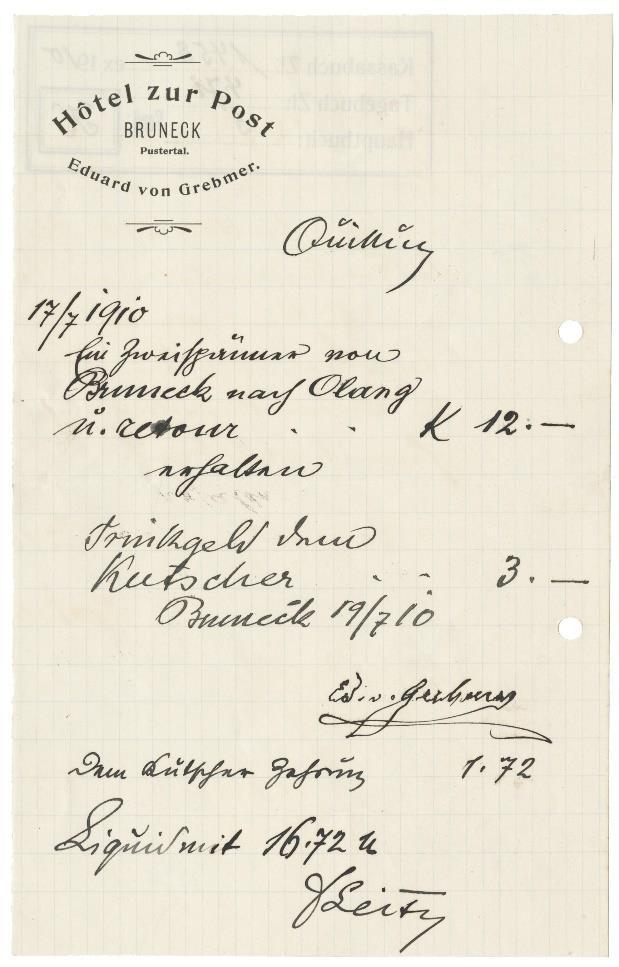 Hôtel zur Post
BRUNECK
Pustertal.
Eduard von Grebmer.
Quittung
17/7 1910
Ein Zweispänner von
Bruneck nach Olang
u. retour . . K 12.—
erhalten
Trinkgeld dem
Kutscher . . 3.—
Bruneck 19/7 10
Ed. v. Grebmer
Dem Kutscher Zehrung 1.72
Liquid mit 16.72 K